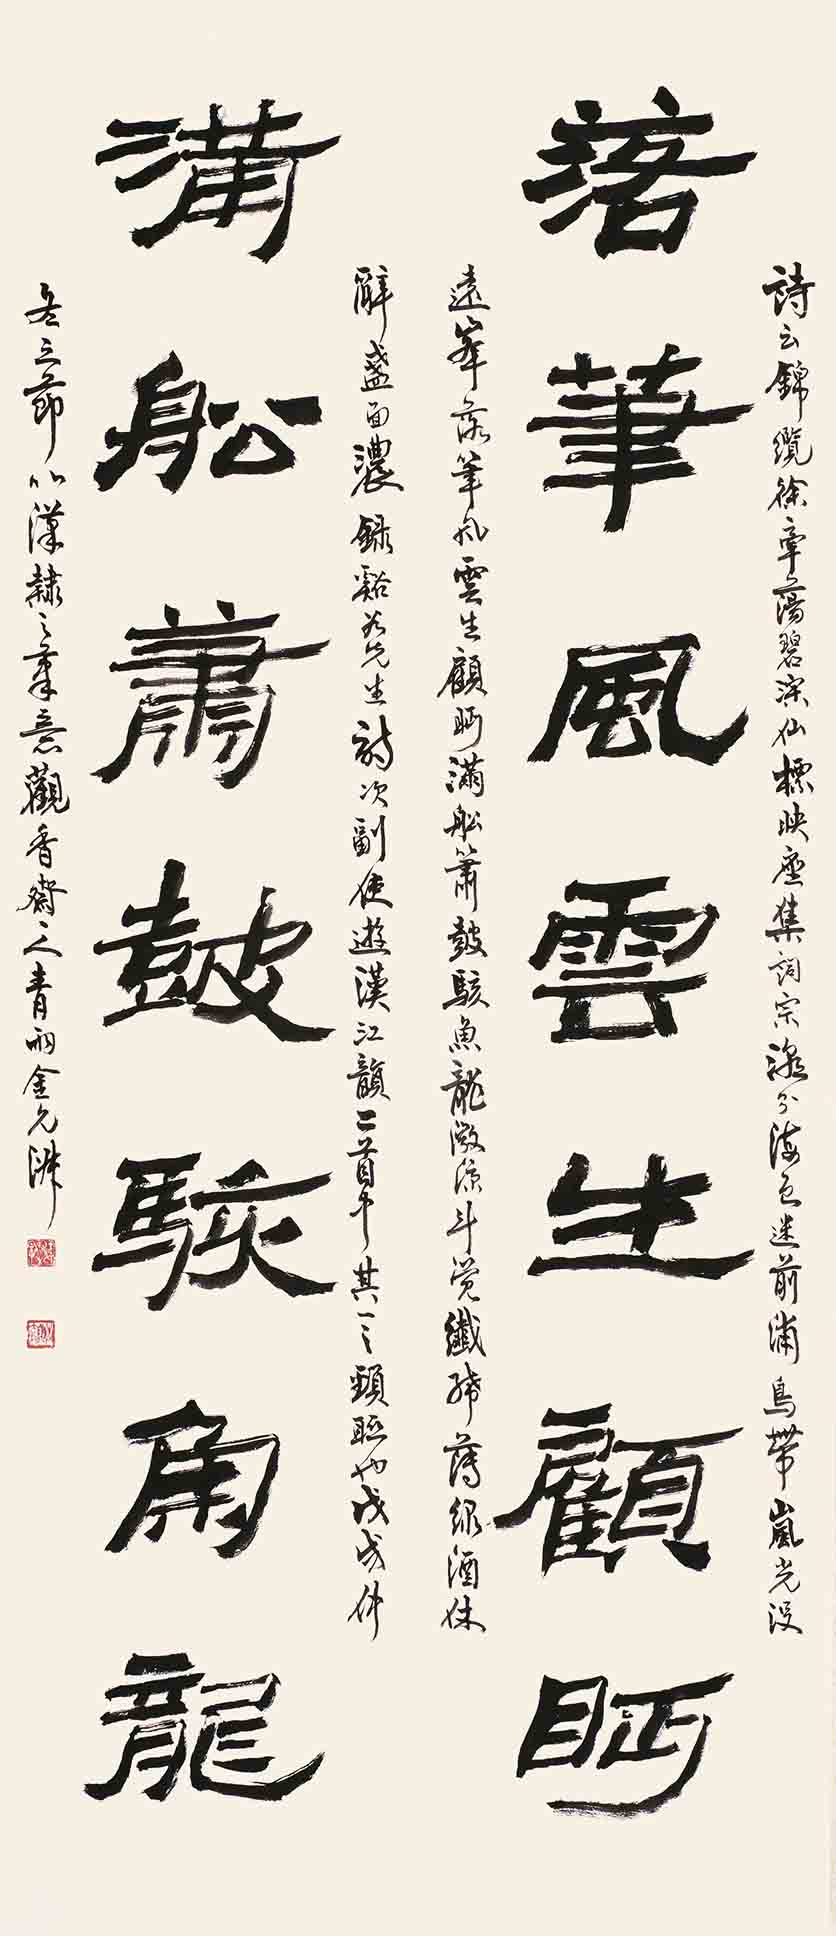 詩云錦纜徐牽蕩碧淙仙標映座集詞宗瀛分海色迷前浦鳥帶嵐光沒
落筆風雲生顧眄
遠峯落筆風雲生顧眄滿船簫鼓駭魚龍微涼斗覺纖絺薄綠酒休
辭盞面濃錄谿谷先生詩次副使遊漢江韻二首中其一之頸聯也戊戌仲
滿船簫鼓駭角龍
冬之節以漢隸之筆意觀香齋人青雨金允洙